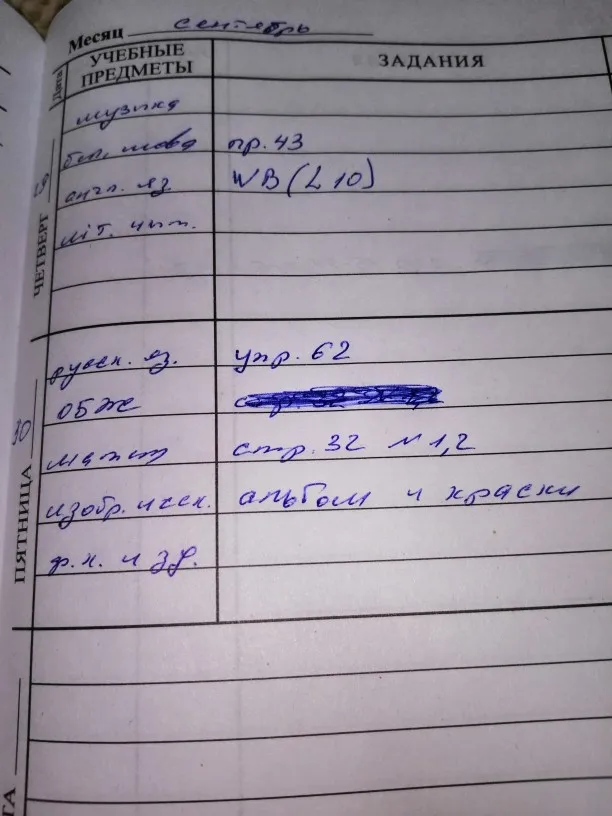 Месяц сентябрь
Дата УЧЕБНЫЕ ПРЕДМЕТЫ ЗАДАНИЯ
ЧЕТВЕРГ
музыка
бел. мова пр. 43
англ. яз WB (L 10)
літ. чыт.
ПЯТНИЦА 30
русск. яз. упр. 62
ОБЖ
матем стр. 32 №1,2
изобр. иск. альбом и краски
ф. к. и зд.